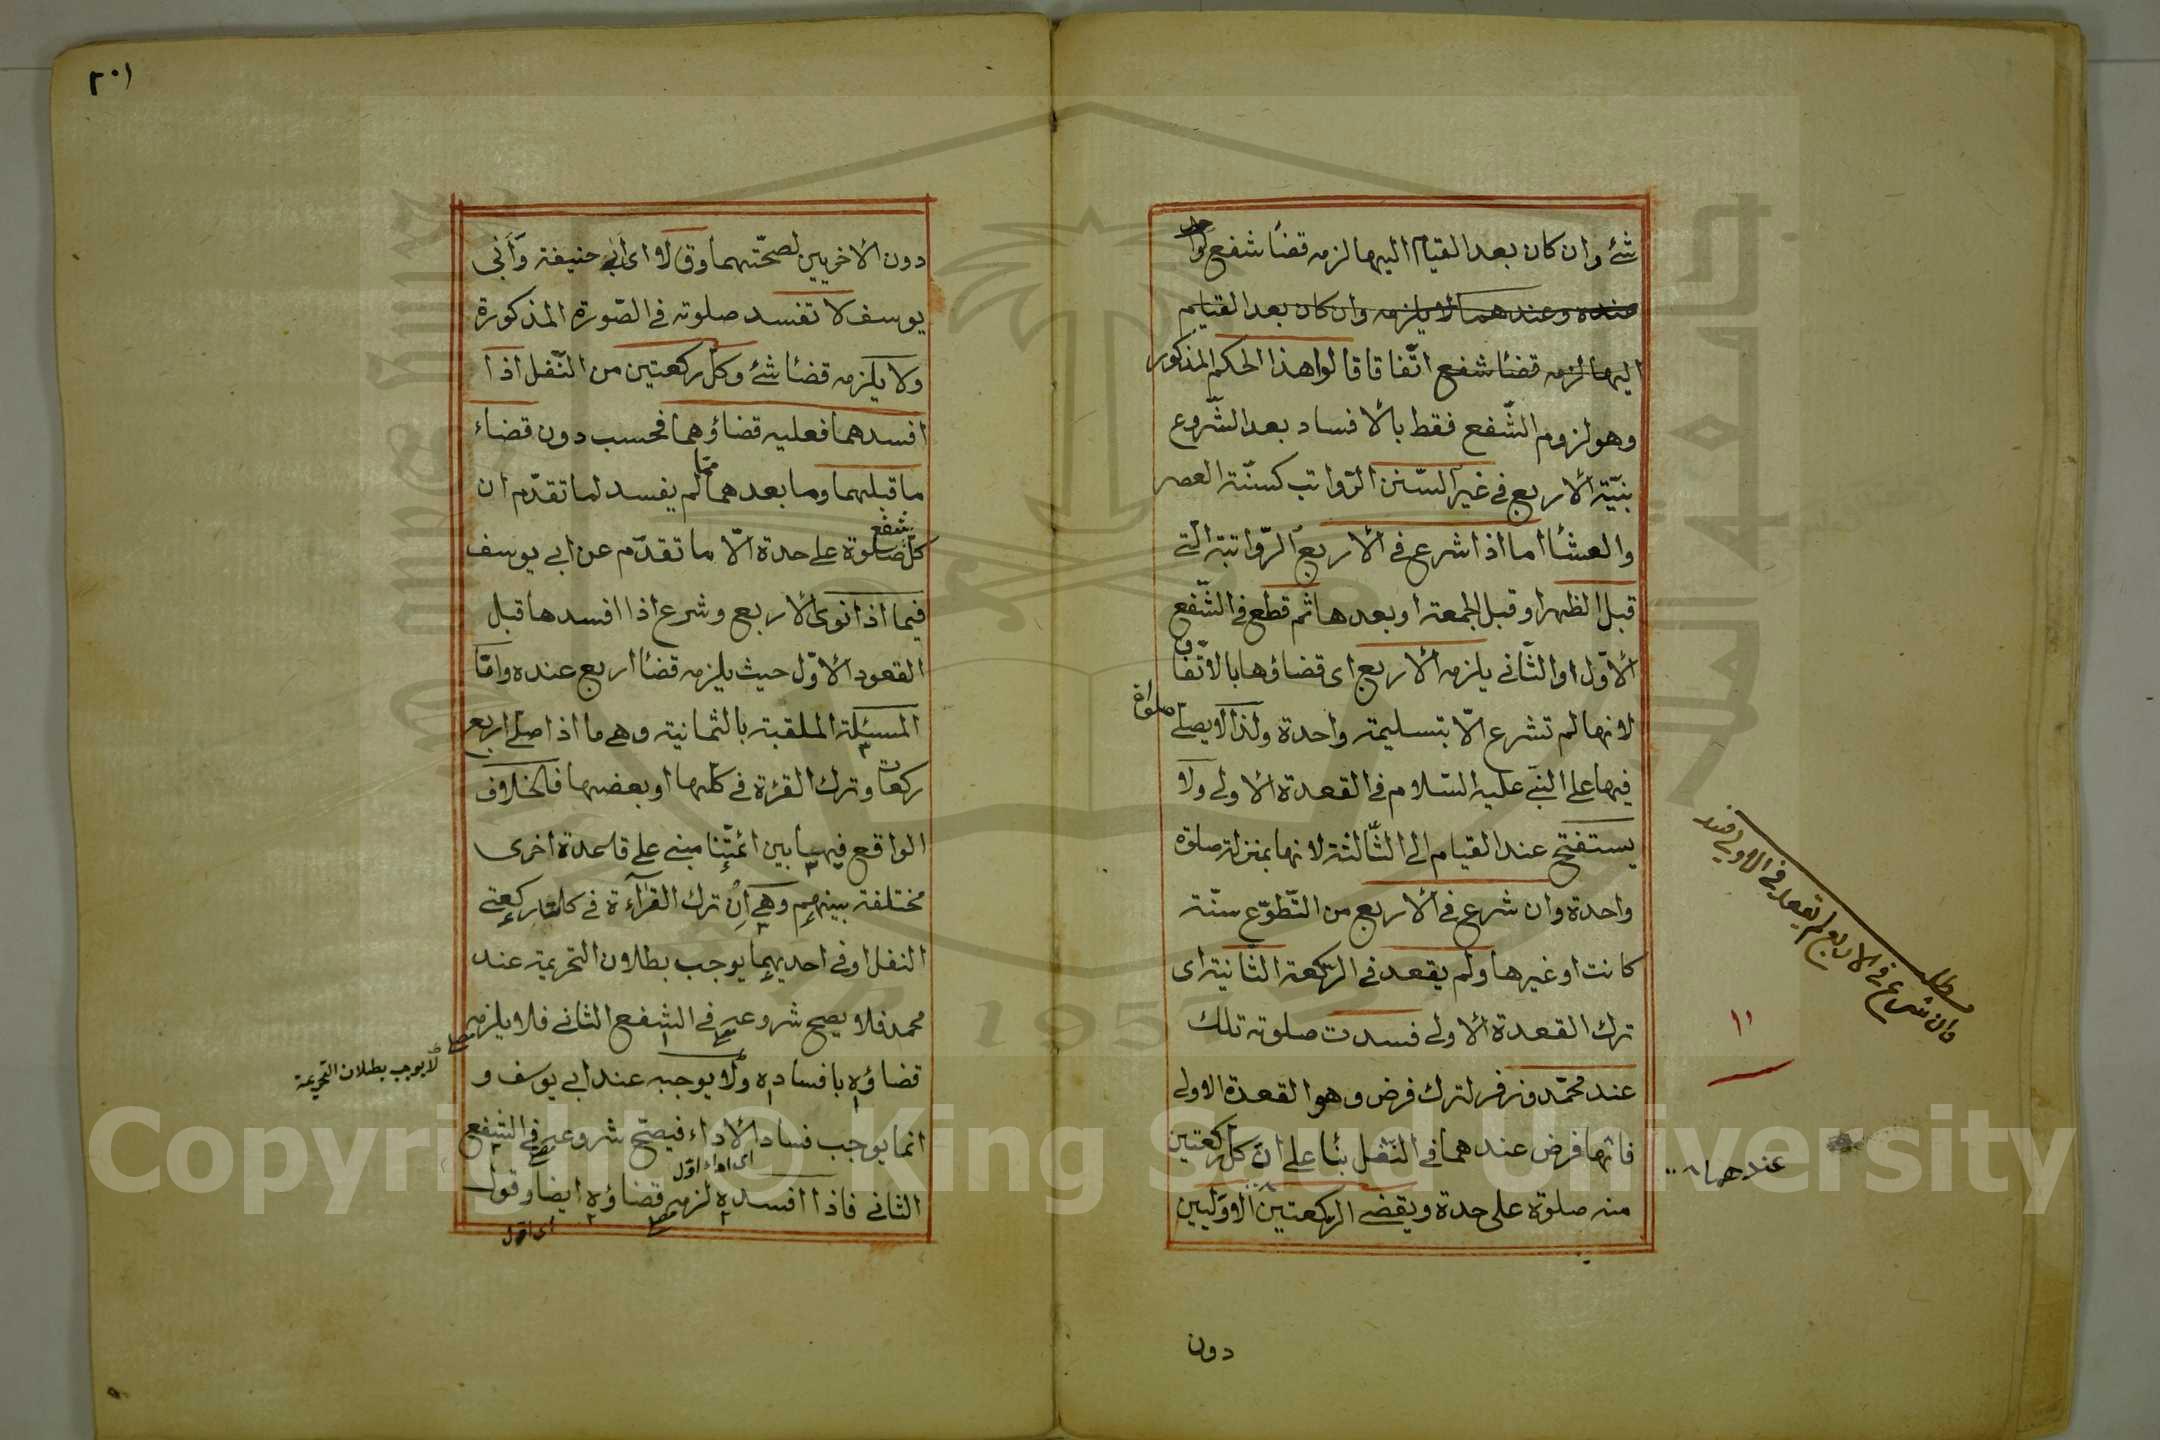 شئ وان كان بعد القيام اليها لزمه قضأ شفع واحد
عنده وعندهما لا يلزمه وان كان بعد القيام
اليها لزمه قضأ شفع اتّفاقا قالوا هذا الحكم المذكور
وهو لزوم الشّفع فقط بالافساد بعد الشّروع
بنيّة الاربع فى غير السّنن الرّواتب كسنّة العصر
والعشأ اما اذا شرع فى الاربع الرّواتبة الّتى
قبل الظهر او قبل الجمعة او بعدها ثم قطع فى الشّفع
الاوّل او الثّانى يلزمه الاربع اى قضاؤها بالاتّفاق
لانها لم تشرع الّا بتسليمة واحدة ولذا لا يصلّى
صلواة
فيها على النبّى عليه السّلام فى القعدة الاولى ولا
يستفتح عند القيام الى الثّالثة لانها بمنزلة صلوة
واحدة وان شرع فى الاربع من التّطوّع سنّة
كانت او غيرها ولم يقعد فى الرّكعة الثّانية اى
ترك القعدة الاولى فسدت صلوته تلك
عند محمّد وزفر لترك فرض وهو القعدة الاولى
فانّها فرض عندهما فى النّفل بنأ على انّ كلّ ركعتين
منه صلوة على حدة ويقضى الرّكعتين الاوّليين
مطلب
وان شرع فى الاربع ولم يقعد فى الاولى فسد
عندهما
دون
٢٠١
دون الاخريين لصحّتهما وقالا اى ابى حنيفة وأبى
يوسف لا تفسد صلوته فى الصّورة المذكورة
ولا يلزمه قضأ شئ وكلّ ركعتين من النّفل اذا
افسدهما فعليه قضاؤهما فحسب دون قضاء
ما قبلهما وما بعدهما ممّا لم يفسد لما تقدّم ان
كلّ شفع صلوة على حدة الّا ما تقدّم عن ابى يوسف
فيما اذا نوى الاربع وشرع اذا افسدها قبل
القعود الاوّل حيث يلزمه قضأ اربع عنده وامّا
المسئلة الملقبة بالثمانية وهى ما اذا صلّى اربع
ركعات وترك القرءة فى كلها او بعضها فالخلاف
الواقع فيها بين ائمّتنا مبنى على قاعدة اخرى
مختلفة بينهم وهى ان ترك القرآءة فى كلتا ركعتى
النفل او فى احديهما يوجب بطلان التحريمة عند
محمد فلا يصح شروعه فى الشفع الثانى فلا يلزمه
قضاؤه بافساده ولا يوجبه عند ابى يوسف و
لا يوجب بطلان التحريمة
انما يوجب فساد الاداء فيصح شروعه فى الشّفع
اى اداء اوّل
الثانى فاذا افسده لزمه قضاؤه ايضا وقول
اى اوّل